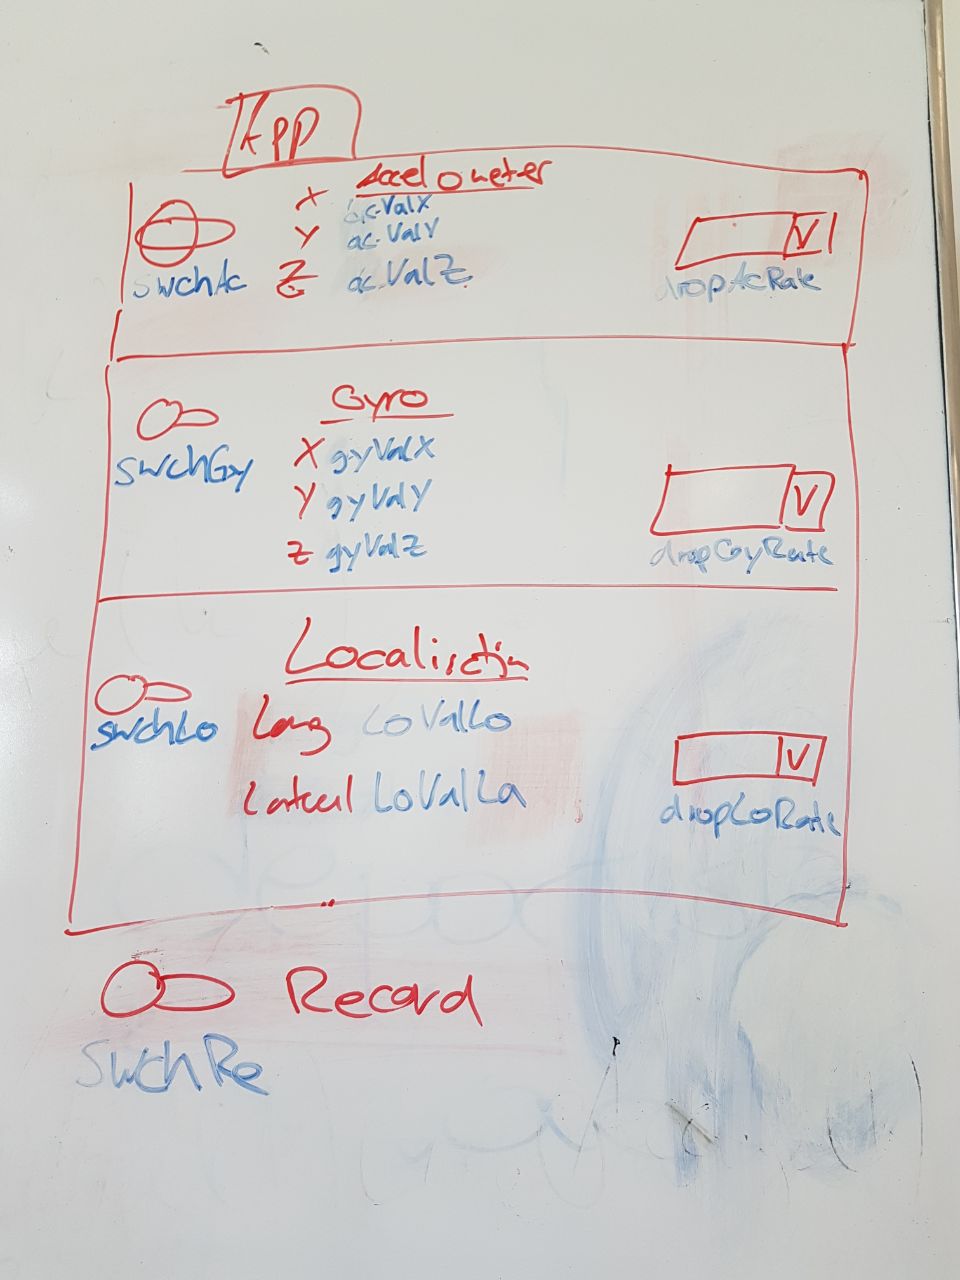 App
Accelometer
X acValX
Y acValY
Z acValZ
swchAc
V
dropAcRate
Gyro
swchGy
X gyValX
Y gyValY
Z gyValZ
V
dropGyRate
Localisation
swchLo
Long LoValLo
V
LoValLa
dropLoRate
Record
SwchRe